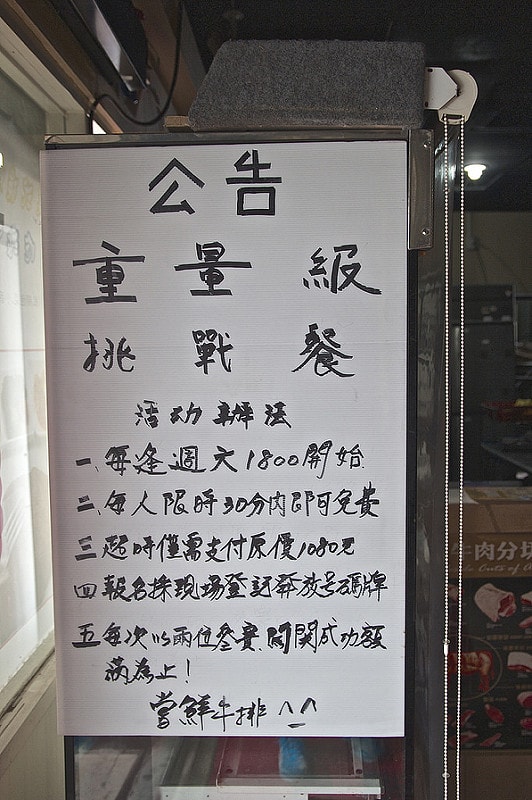 公告
重量級
挑戰餐
活動辦法
一、每逢週六1800開始
二、每人限時30分內即可免費
三超時僅需支付原價1080元
四報名採現場登記發放号碼牌
五每次以兩位參賽.闖關成功額
滿為止!
嘗鮮牛排 ^_^
牛肉分切